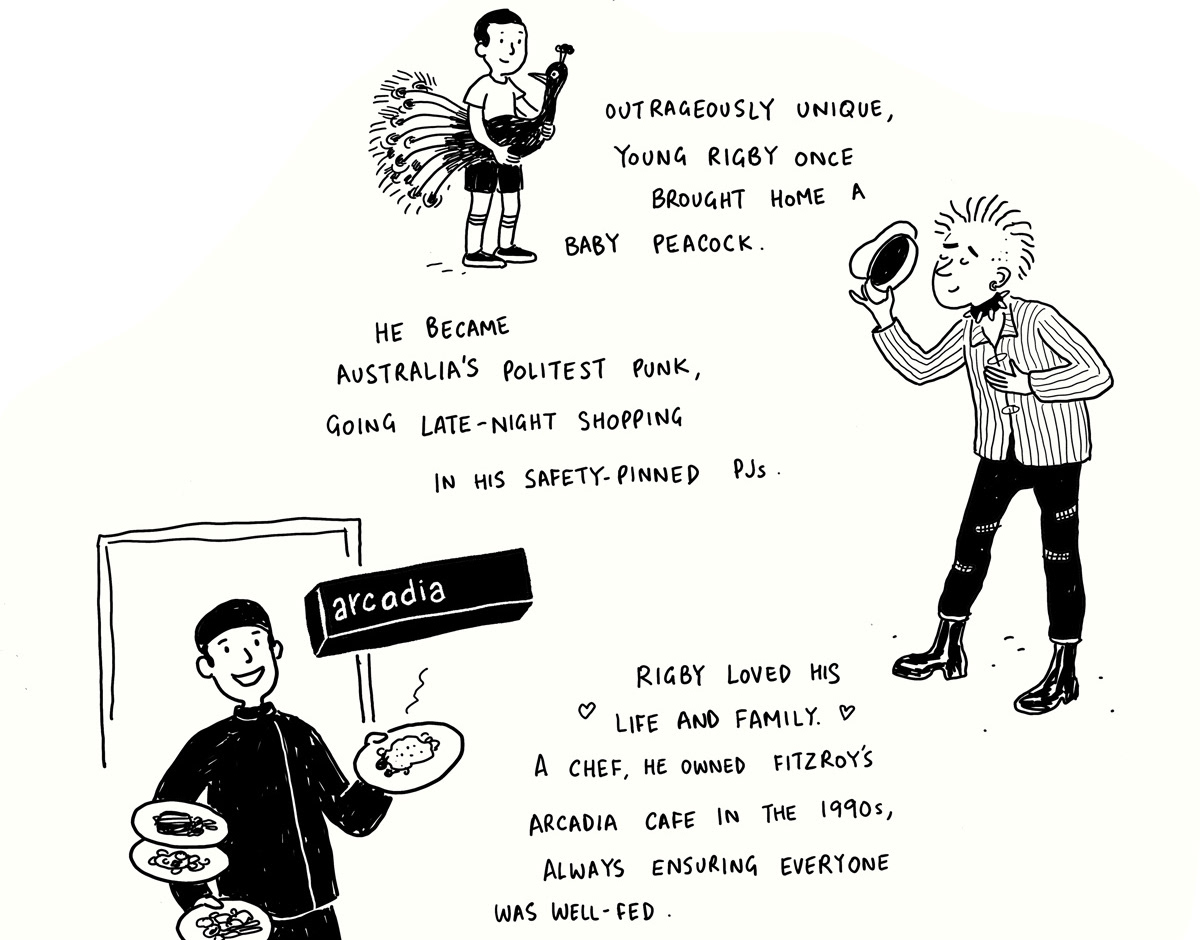 OUTRAGEOUSLY UNIQUE,
YOUNG RIGBY ONCE
BROUGHT HOME A
BABY PEACOCK.
HE BECAME
AUSTRALIA'S POLITEST PUNK,
GOING LATE-NIGHT SHOPPING
IN HIS SAFETY-PINNED PJs.
arcadia
RIGBY LOVED HIS
♡ LIFE AND FAMILY. ♡
A CHEF, HE OWNED FITZROY'S
ARCADIA CAFE IN THE 1990s,
ALWAYS ENSURING EVERYONE
WAS WELL-FED.